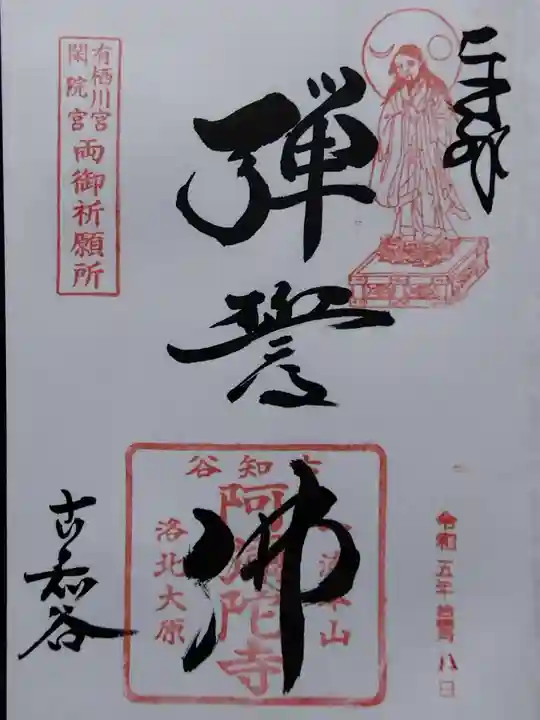 奉拝
令和五年 八日
弾誓
佛
古知谷
阿弥陀寺
洛北大原
古知谷
有栖川宮
閑院宮
両御祈願所